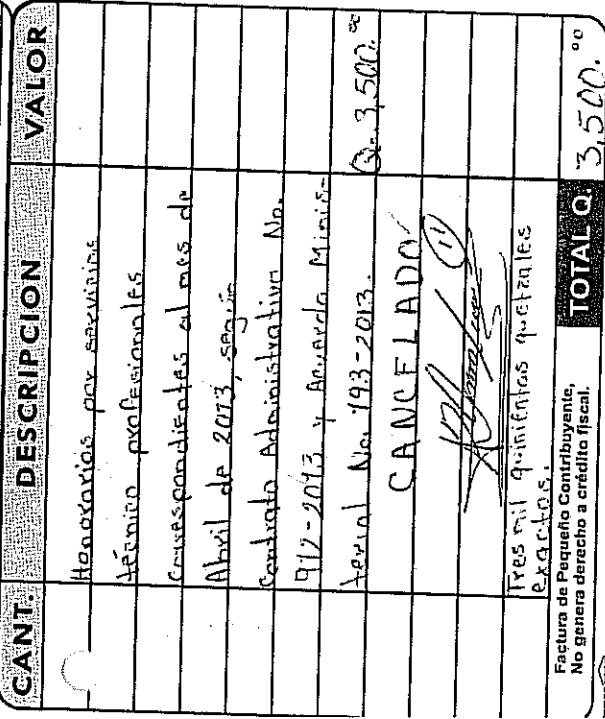 CANT. DESCRIPCION VALOR
Honorarios por servicios
técnico profesionales
correspondientes al mes de
Abril de 2013, según
Contrato Administrativo No.
912-2013 y Acuerdo Minis-
terial No. 193-2013. Q. 3,500.00
CANCELADO
11
Tres mil quinientos quetzales
exactos.
Factura de Pequeño Contribuyente,
No genera derecho a crédito fiscal.
TOTAL Q. 3,500.00